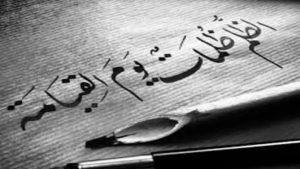 الظلم ظُلُمَاتٌ يَومَ القِيَامَة